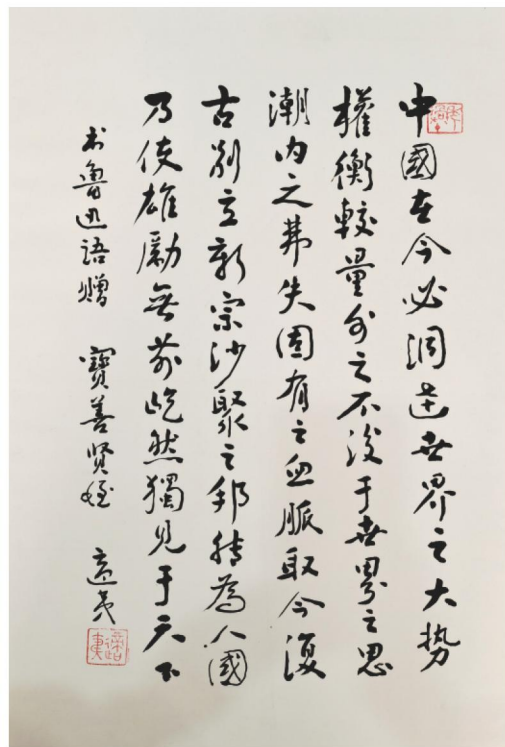 中國在今必洞達世界之大势
權衡較量外之不後于世界之思
潮内之弗失固有之血脈取今復
古别立新宗沙聚之邦转為人國
乃使雄勵無前屹然獨見于天下
书魯迅語赠 寶善贤姪 適夷